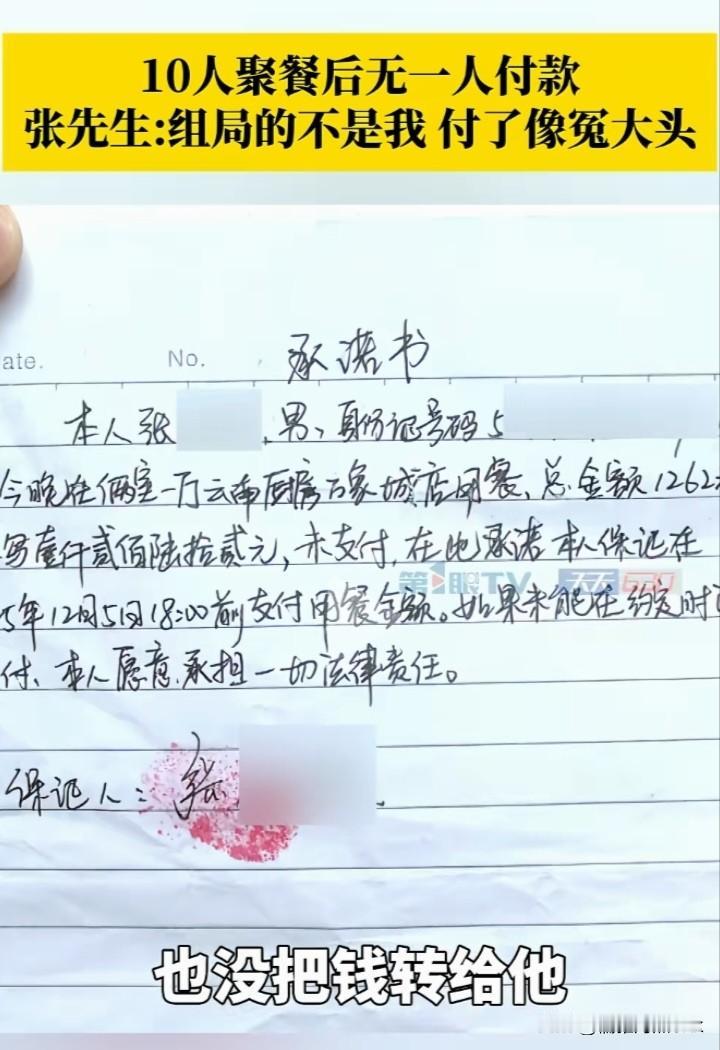 10人聚餐后无一人付款
张先生:组局的不是我 付了像冤大头
ate. No. 承诺书
本人张 ,男、身份证号码5
今晚在俩室一厅云南厨房万象城店用餐、总金额1262
写壹仟贰佰陆拾贰元,未支付,在此承诺本人保证在
第1眼TV 天天630
5年12月5日18:00前支付用餐金额。如果未能在约定时间
付、本人愿意承担一切法律责任。
保证人:张
也没把钱转给他